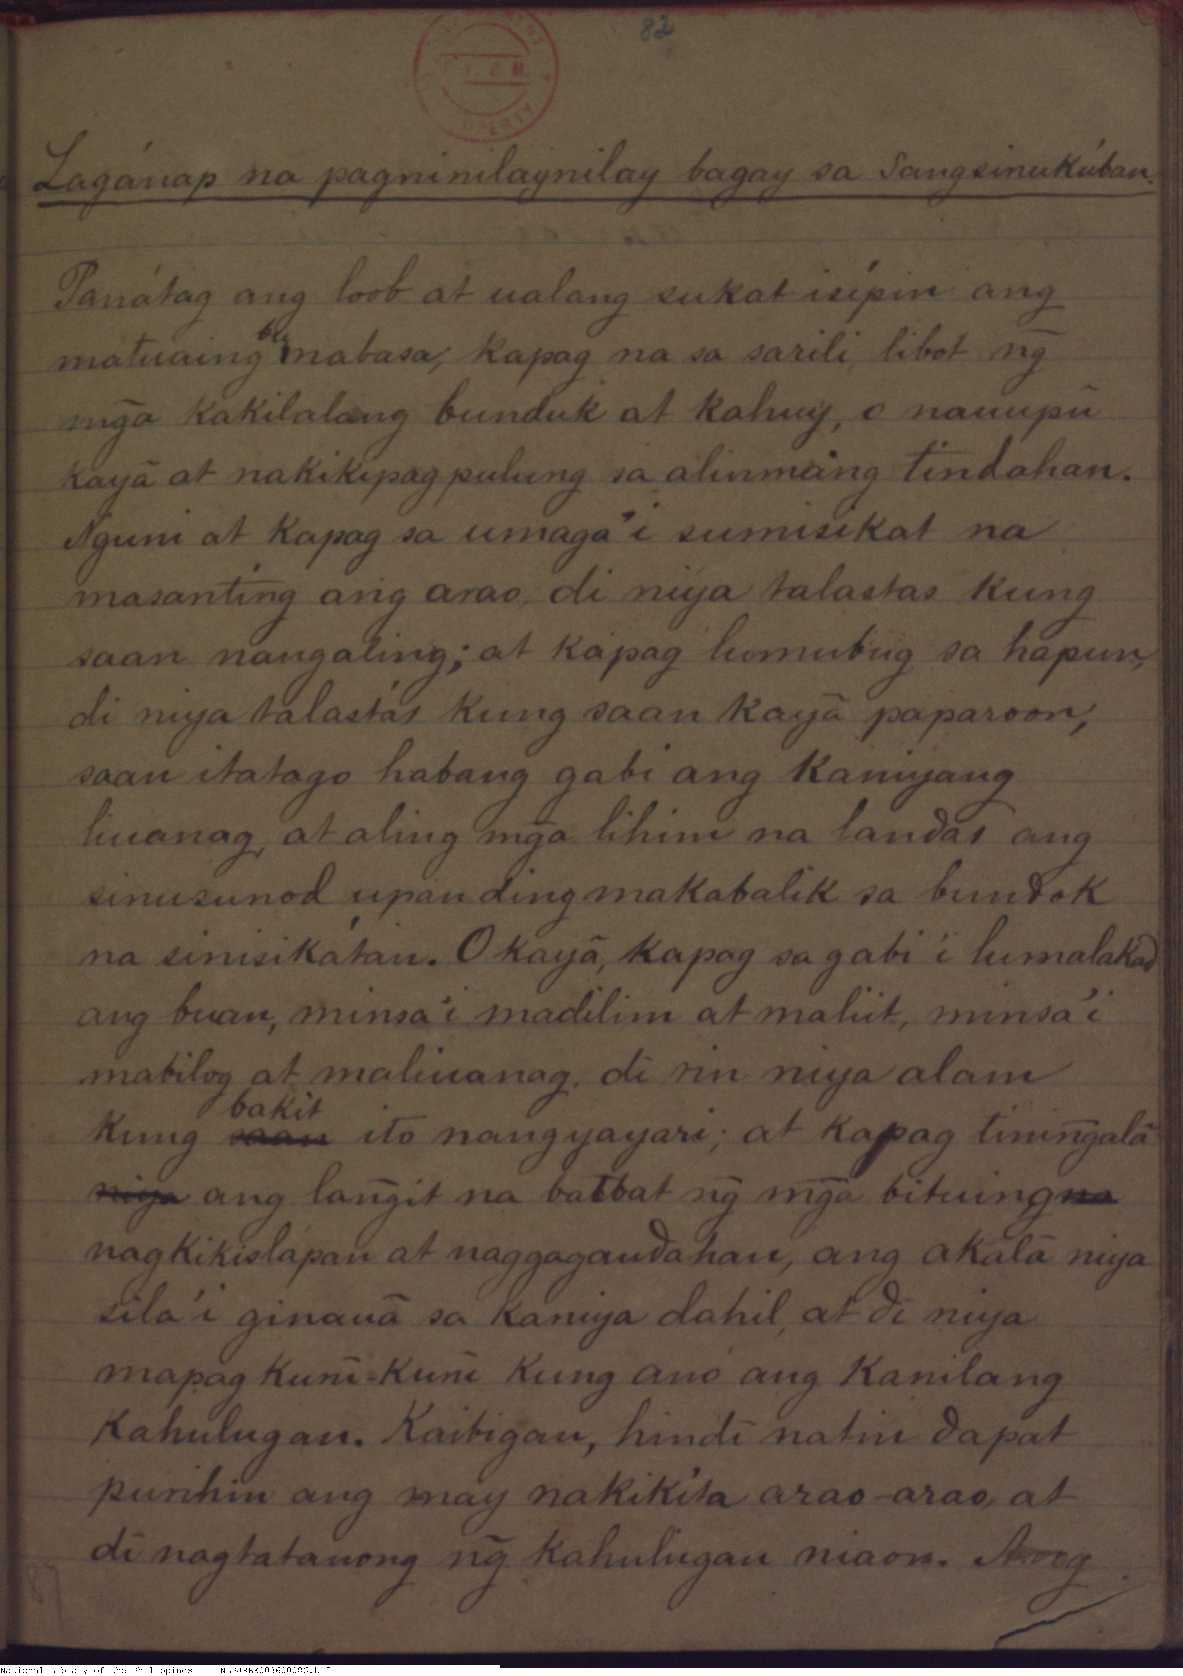 82
Lagánap na pagninilaynilay bagay sa Sangsinukúban.
Panátag ang loob at ualang sukat isípin ang
matuaing bu mabasa, kapag na sa sarili libot ng̃
mg̃a kakilalang bunduk at kahuy, o nauupū
kayā at nakikipagpulung sa alinmáng tindahan.
Nguni at kapag sa umaga'i sumisikat na
masanting ang arao, di niya talastas kung
saan nangaling; at kapag lumubug sa hapun,
di niya talastás kung saan kayā paparoon,
saan itatago habang gabi ang kaniyang
liuanag, at aling mg̃a lihim na landas ang
sinusunod upanding makabalik sa bundok
na sinisikátan. O kayā, kapag sa gabi'i lumalakad
ang buan, minsa'i madilim at maliit, minsa'i
mabilog at maliuanag, di rin niya alam
kung saan bakit ito nangyayari; at kapag tining̃alā
niya ang lang̃it na batbat ng̃ mg̃a bituing na
nagkikislápan at naggagandahan, ang akalā niya
sila'i ginauā sa kaniya dahil, at di niya
mapagkuro-kuro kung anó ang kanilang
kahulugan. Kaibigan, hindī natin dapat
purihin ang may nakikíta arao-arao, at
dī nagtatanong ng̃ kahulugan niaon.
87
National Library of the Philippines